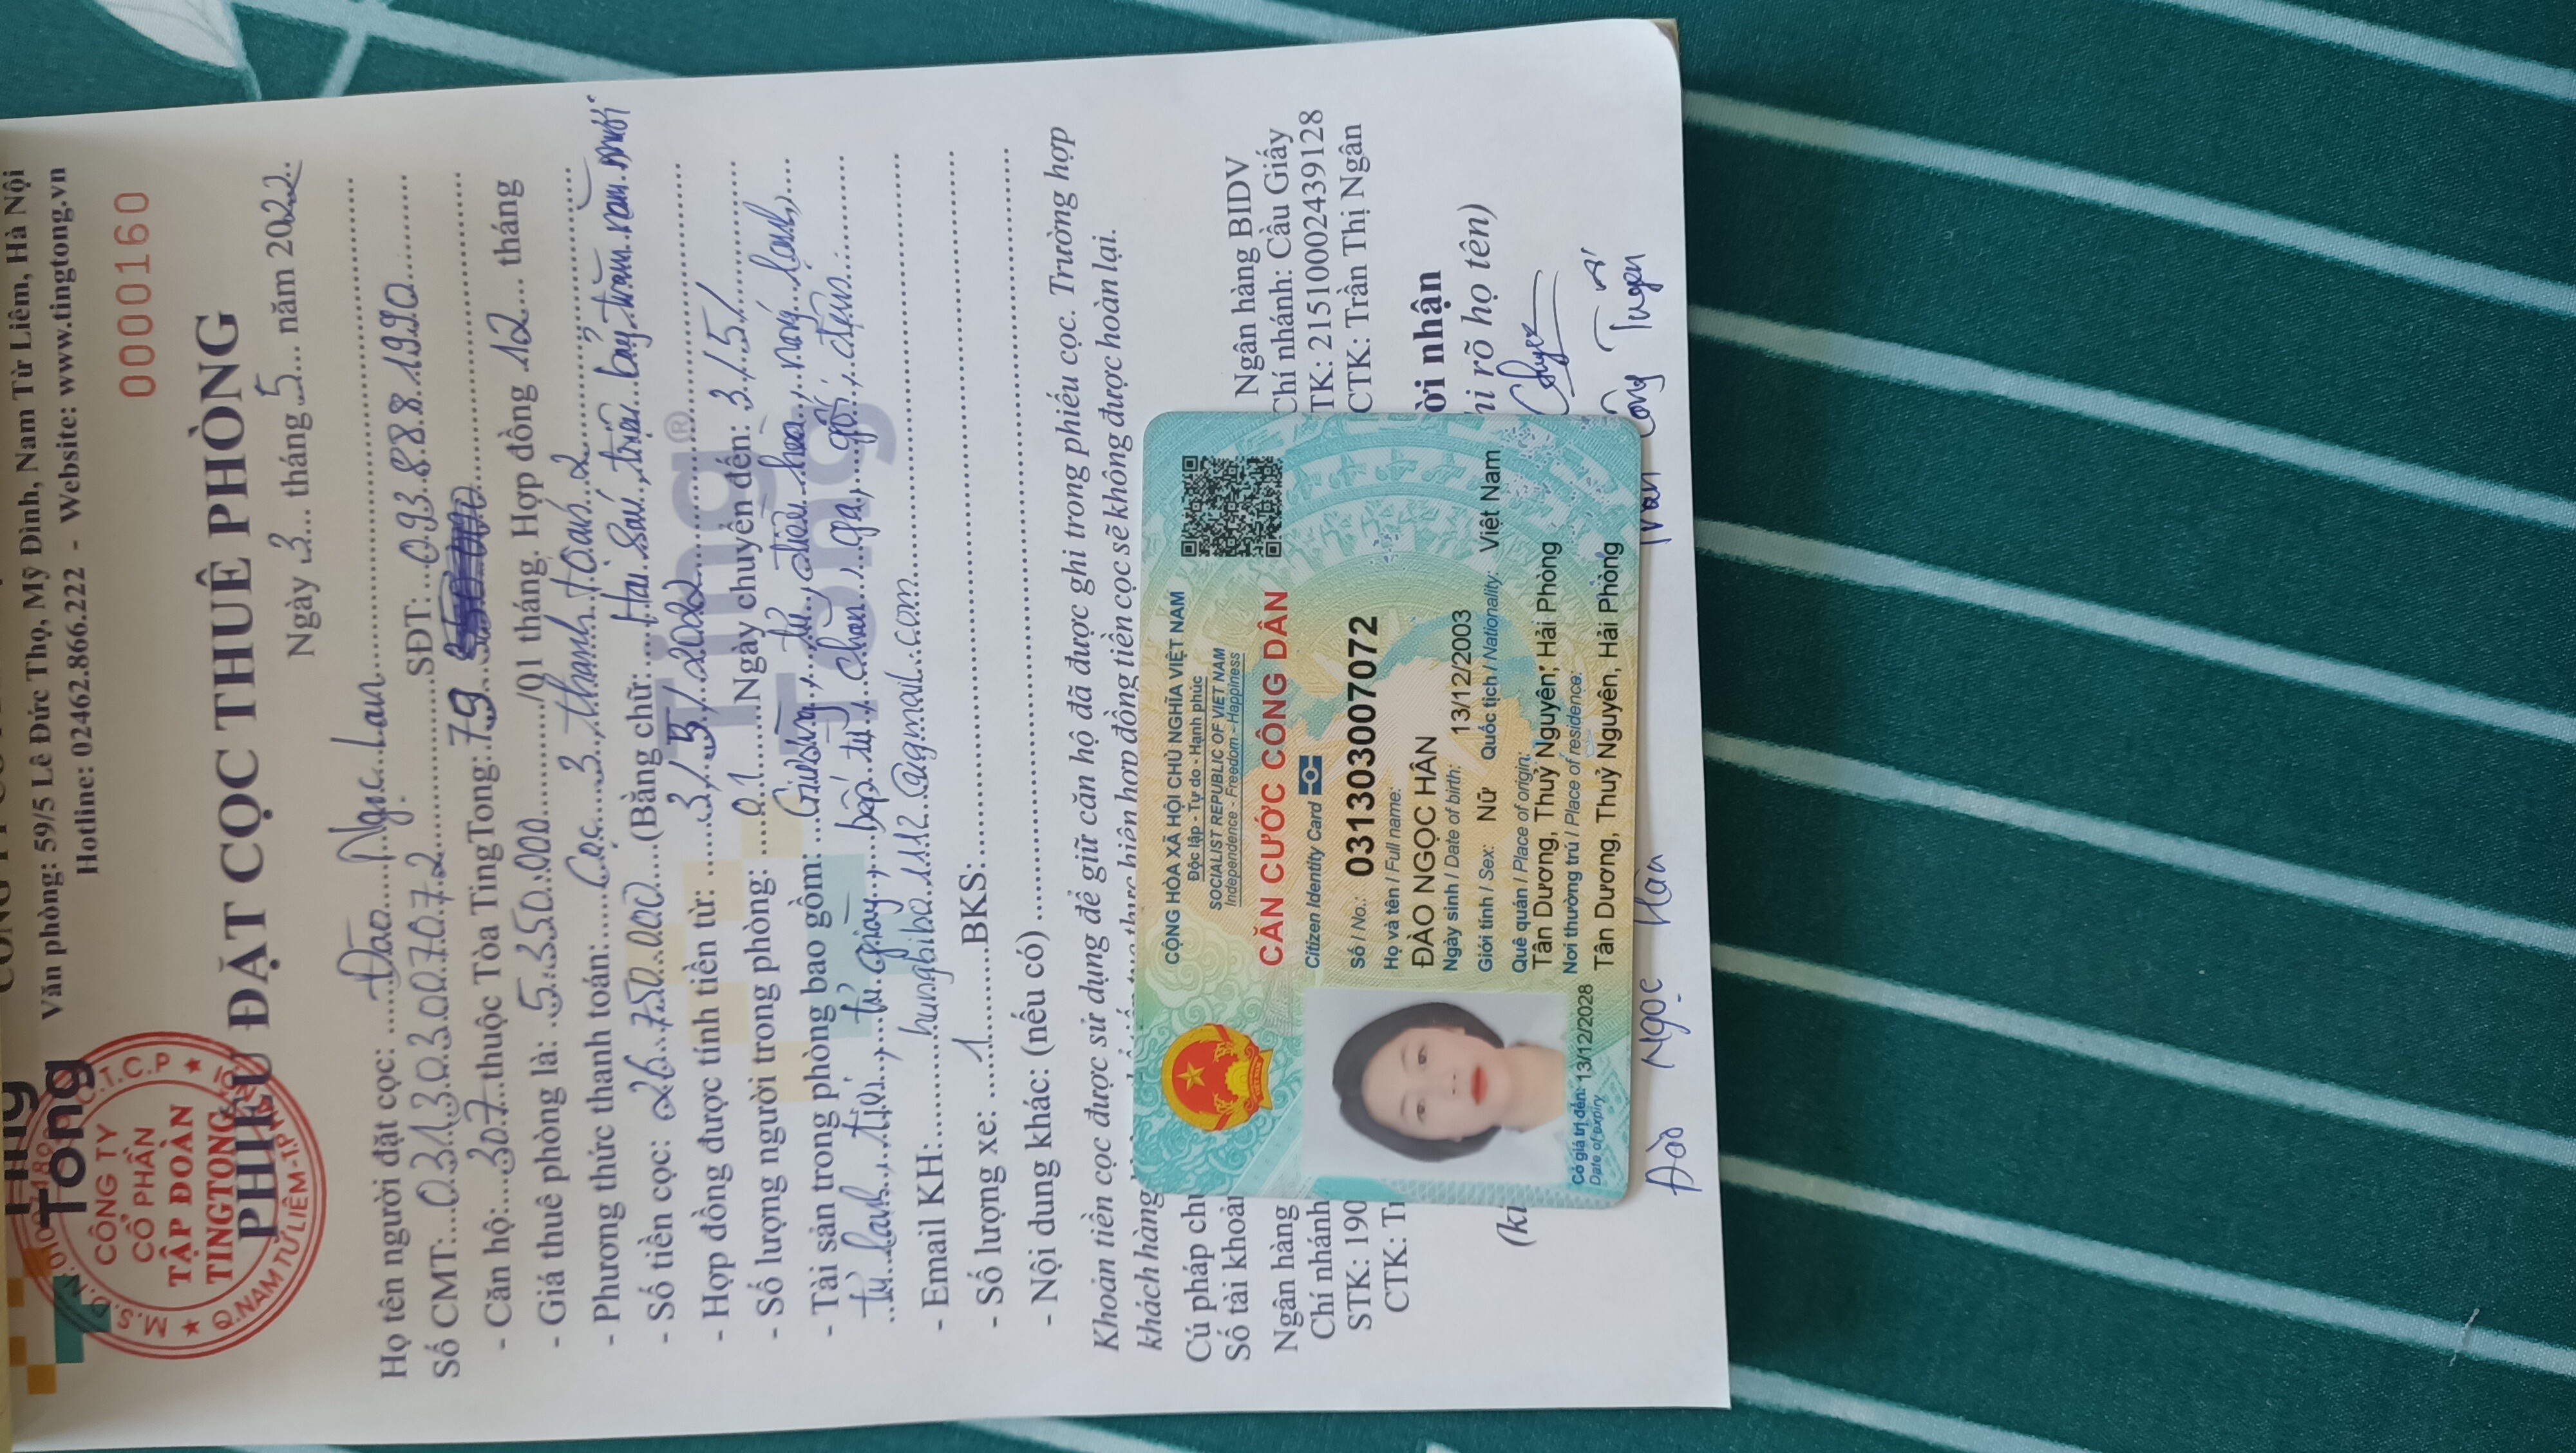 Văn phòng: 59/5 Lê Đức Thọ, Mỹ Đình, Nam Từ Liêm, Hà Nội
Hotline: 02462.866.222 - Website: www.tingtong.vn
Ting
Tong
CÔNG TY
CỔ PHẦN
TẬP ĐOÀN
TINGTONG
Q.NAM TỪ LIÊM-T.P
0000160
PHIẾU ĐẶT CỌC THUÊ PHÒNG
Ngày 3 tháng 5 năm 2022
Họ tên người đặt cọc: Đào Ngọc
Số CMT: 031303007072 SĐT: 0938881990
- Căn hộ: 307 thuộc Tòa TingTong: 79
- Giá thuê phòng là: 5.350.000 /01 tháng. Hợp đồng 12 tháng
- Phương thức thanh toán: Cọc 3 thanh toán 2
- Số tiền cọc: 26.750.000 (Bằng chữ: Hai sáu triệu bảy trăm năm mươi
- Hợp đồng được tính tiền từ: 3/5/2022
- Số lượng người trong phòng: 01 Ngày chuyển đến: 3/5/
- Tài sản trong phòng bao gồm: Giường, tủ, điều hòa, nóng lạnh,
tủ lạnh, tivi, tủ giày, bếp từ, chăn, ga, gối, đệm.
- Email KH: hungbibo1112@gmail.com
- Số lượng xe: 1 BKS:
- Nội dung khác: (nếu có)
Khoản tiền cọc được sử dụng để giữ căn hộ đã được ghi trong phiếu cọc. Trường hợp
khách hàng hợp đồng tiền cọc sẽ không được hoàn lại.
Cú pháp
Số tài khoản
Ngân hàng
Chi nhánh
STK: 190
CTK:
Ngân hàng BIDV
Chi nhánh: Cầu Giấy
TK: 21510002439128
CTK: Trần Thị Ngân
nhận
rõ họ tên)
CỘNG HÒA XÃ HỘI CHỦ NGHĨA VIỆT NAM
Độc lập - Tự do - Hạnh phúc
SOCIALIST REPUBLIC OF VIET NAM
Independence - Freedom - Happiness
CĂN CƯỚC CÔNG DÂN
Citizen Identity Card
Số / No.: 031303007072
Họ và tên / Full name:
ĐÀO NGỌC HÂN
Ngày sinh / Date of birth: 13/12/2003
Giới tính / Sex: Nữ Quốc tịch / Nationality: Việt Nam
Quê quán / Place of origin:
Tân Dương, Thuỷ Nguyên, Hải Phòng
Nơi thường trú / Place of residence:
Tân Dương, Thuỷ Nguyên, Hải Phòng
Có giá trị đến: 13/12/2028
Date of expiry
Đào Ngọc Hân
Công